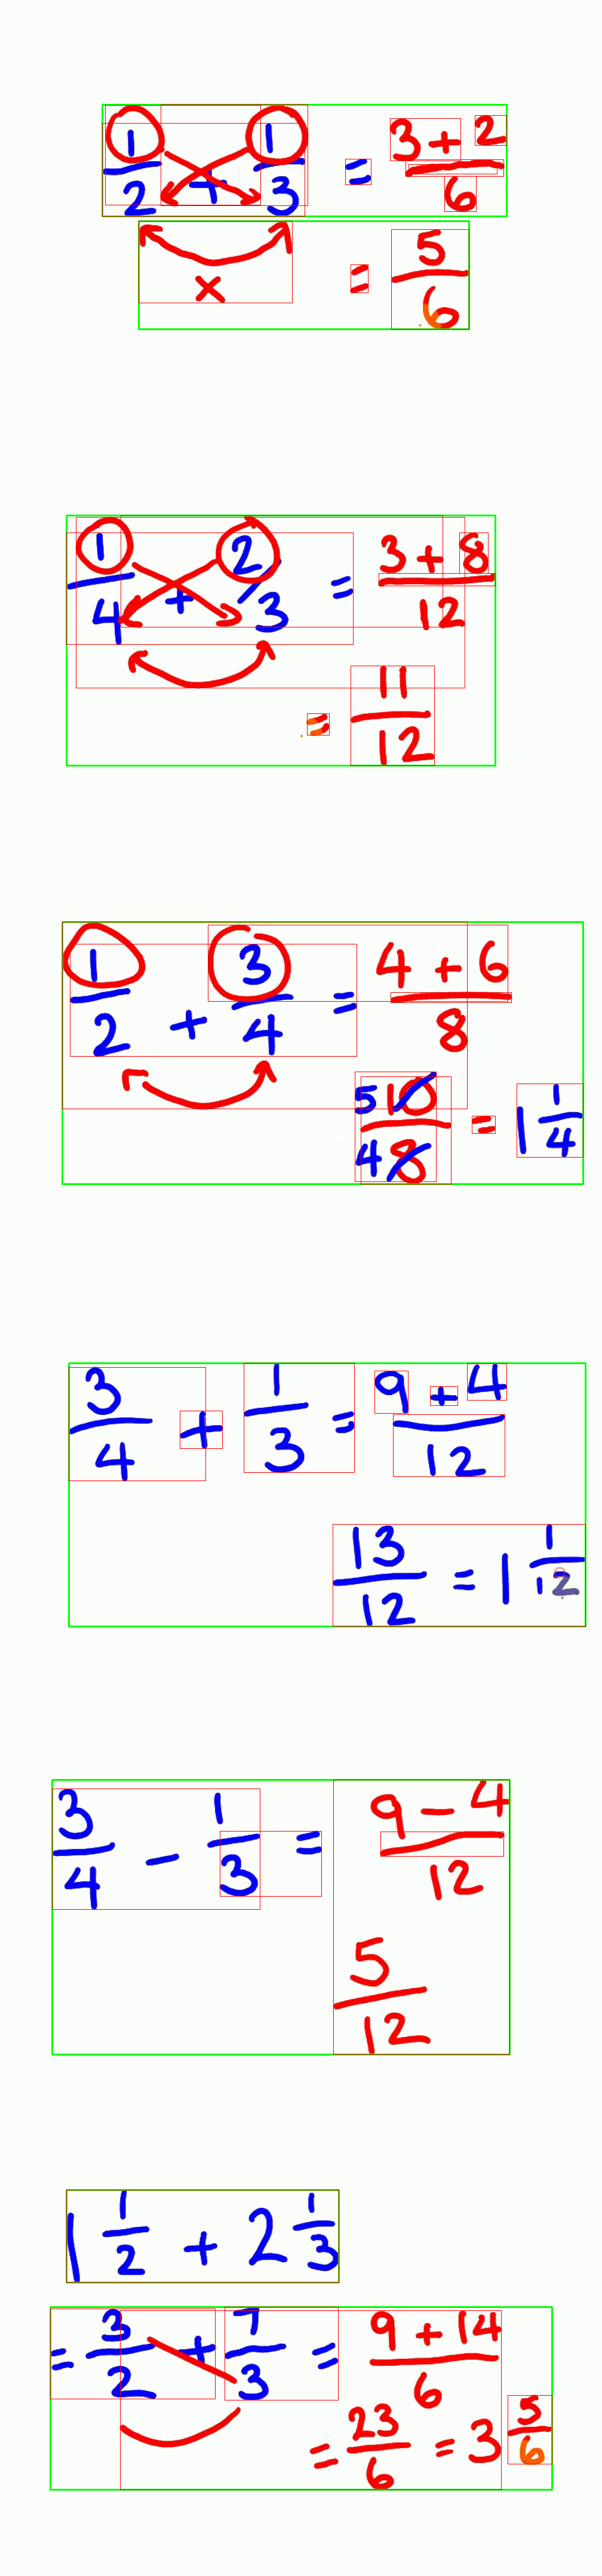 1/2 + 1/3 = (3 + 2)/6
× = 5/6
1/4 + 2/3 = (3 + 8)/12
= 11/12
1/2 + 3/4 = (4 + 6)/8
5 10/4 8 = 1 1/4
3/4 + 1/3 = (9 + 4)/12
13/12 = 1 1/12
3/4 - 1/3 = (9 - 4)/12
5/12
1 1/2 + 2 1/3
= 3/2 + 7/3 = (9 + 14)/6
= 23/6 = 3 5/6